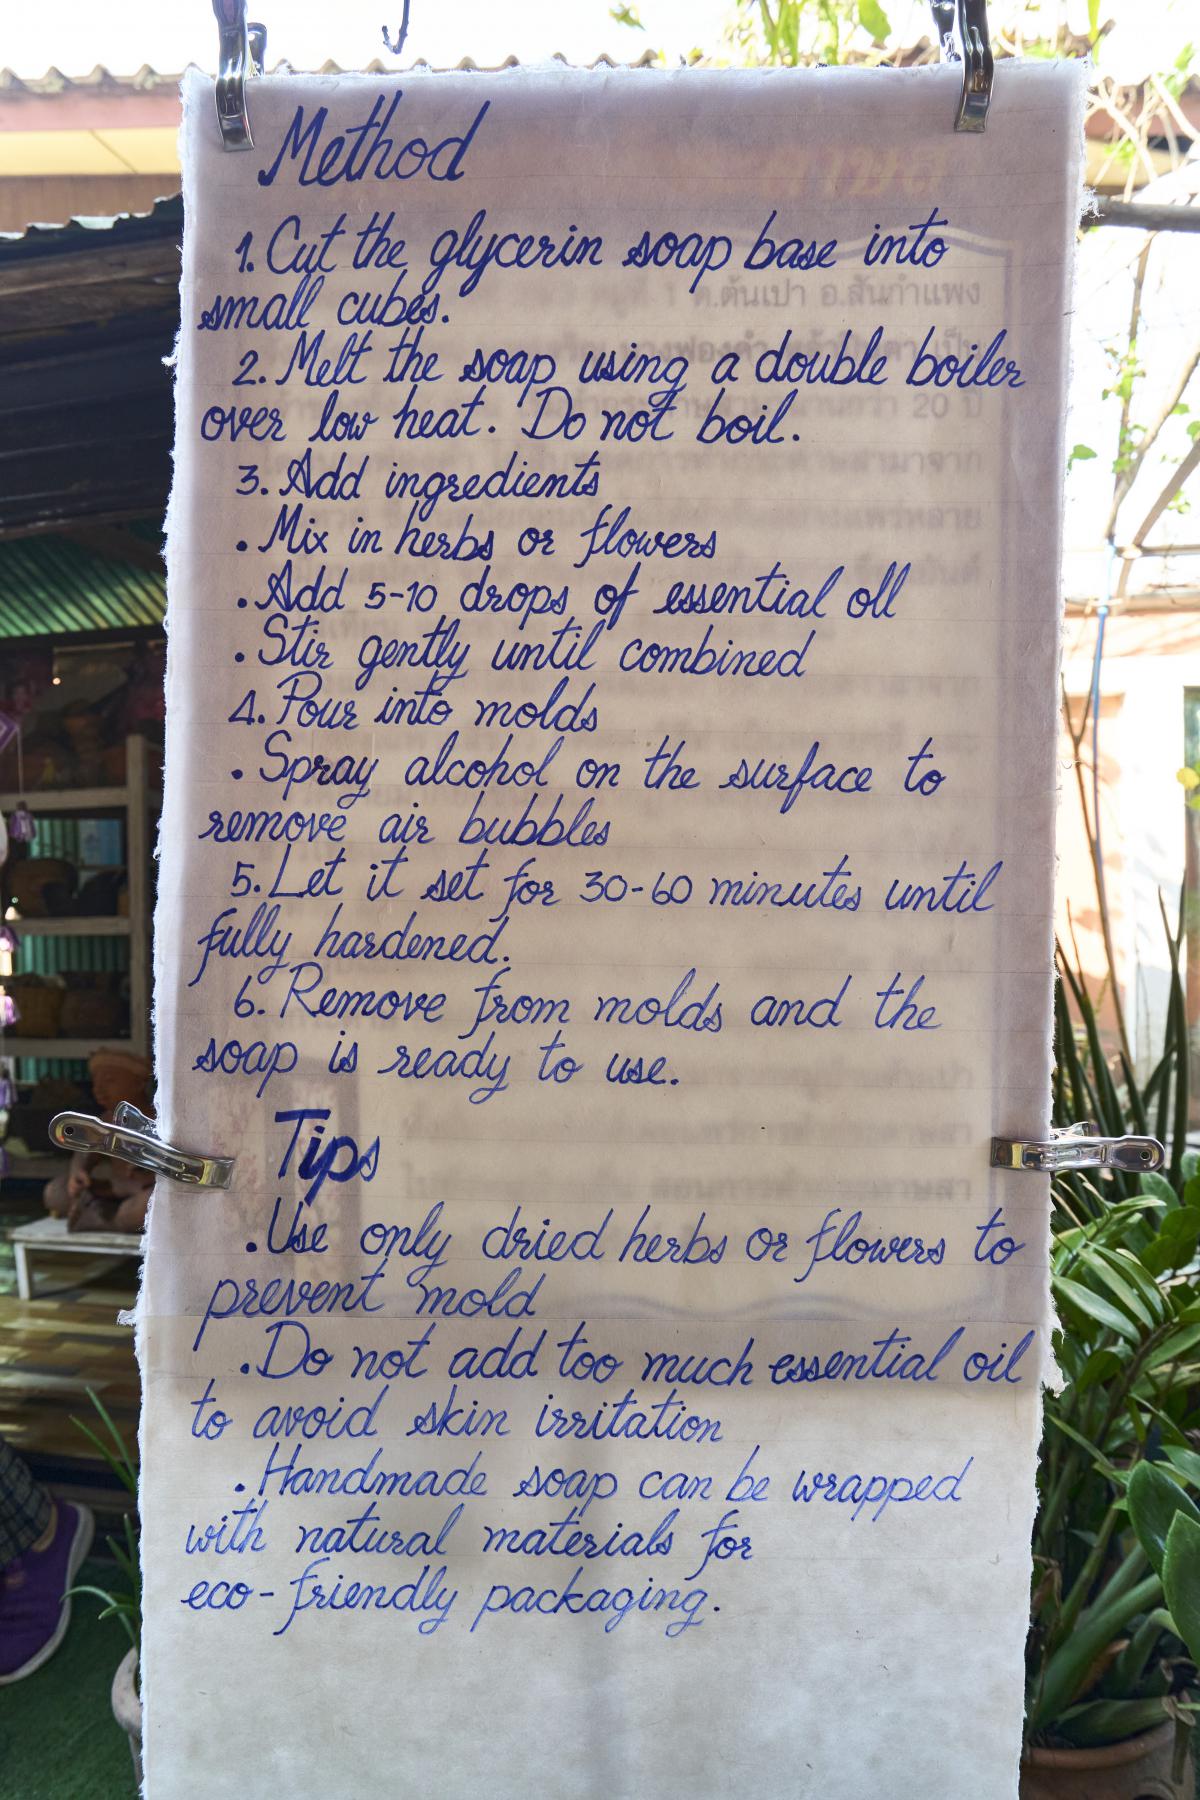 Method
1. Cut the glycerin soap base into
small cubes.
2. Melt the soap using a double boiler
over low heat. Do not boil.
3. Add ingredients
. Mix in herbs or flowers
. Add 5-10 drops of essential oll
. Stir gently until combined
4. Pour into molds
. Spray alcohol on the surface to
remove air bubbles
5. Let it set for 30-60 minutes until
fully hardened.
6. Remove from molds and the
soap is ready to use.
Tips
. Use only dried herbs or flowers to
prevent mold
. Do not add too much essential oil
to avoid skin irritation
. Handmade soap can be wrapped
with natural materials for
eco-friendly packaging.
1 ต.ต้นเปา อ.สันกำแพง
20 ปี